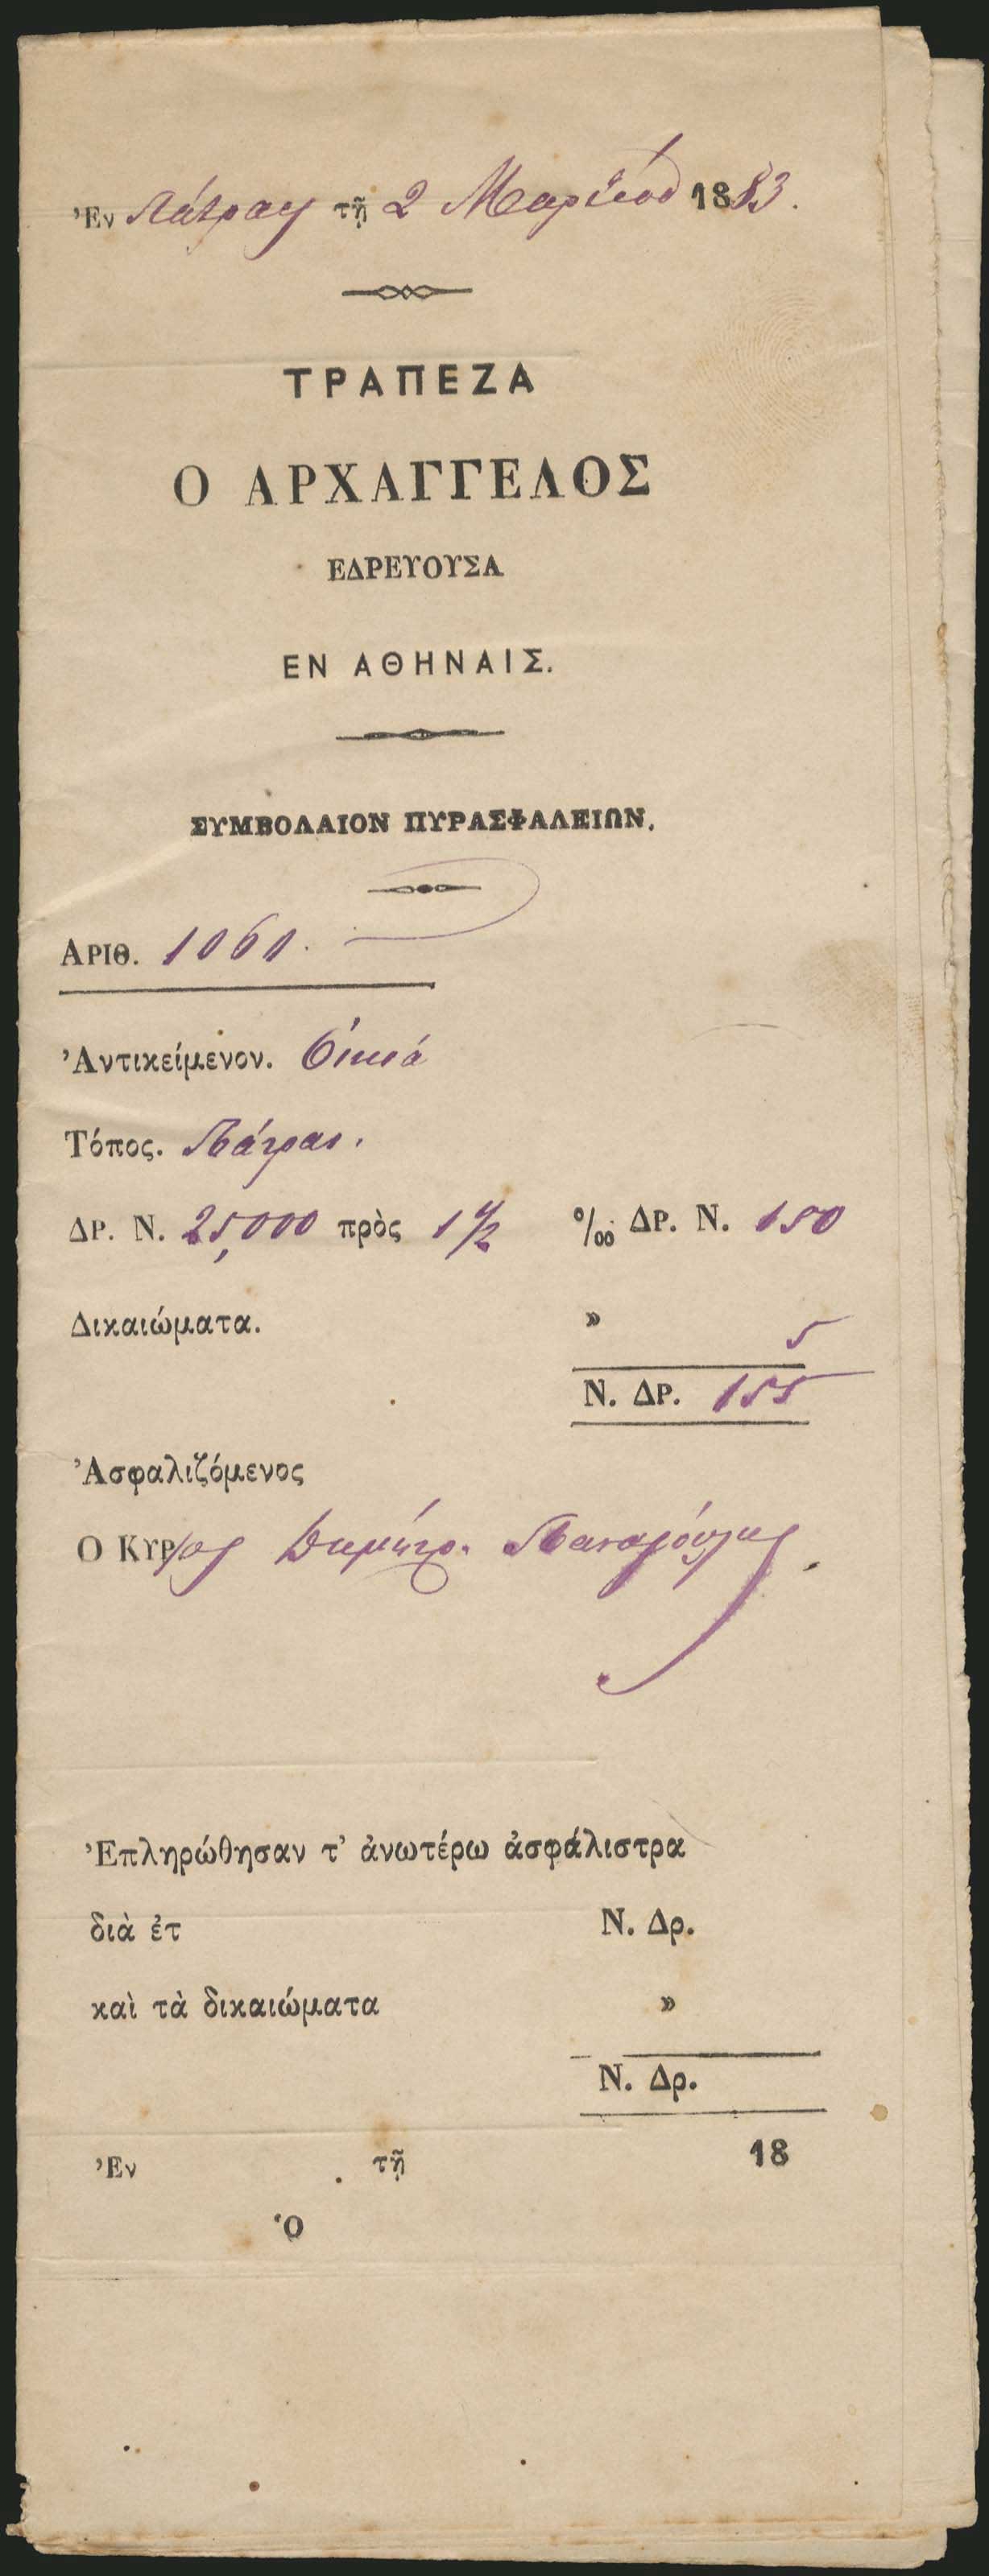 Ἐν Πάτραις τῇ 2 Μαρτίου 1883.
ΤΡΑΠΕΖΑ
Ο ΑΡΧΑΓΓΕΛΟΣ
ΕΔΡΕΥΟΥΣΑ
ΕΝ ΑΘΗΝΑΙΣ.
ΣΥΜΒΟΛΑΙΟΝ ΠΥΡΑΣΦΑΛΕΙΩΝ.
ΑΡΙΘ. 1060.
Ἀντικείμενον. Οἰκία
Τόπος. Πάτραι.
ΔΡ. Ν. 25,000 πρὸς 1 1/2 ‰ ΔΡ. Ν. 150
Δικαιώματα. » 5
Ν. ΔΡ. 155
Ἀσφαλιζόμενος
Ο ΚΥΡιος Δημήτρ.
Ἐπληρώθησαν τ' ἀνωτέρω ἀσφάλιστρα
διὰ ἐτ Ν. Δρ.
καὶ τὰ δικαιώματα »
Ν. Δρ.
Ἐν τῇ 18
Ὁ